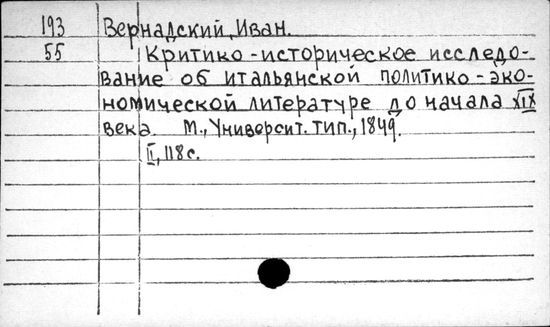 193 Вернадский, Иван.
55 Критико-историческое исследо-
вание об итальянской политико-эко-
номической литературе до начала XIX
века. М., Университ. тип., 1849.
II, 118 с.